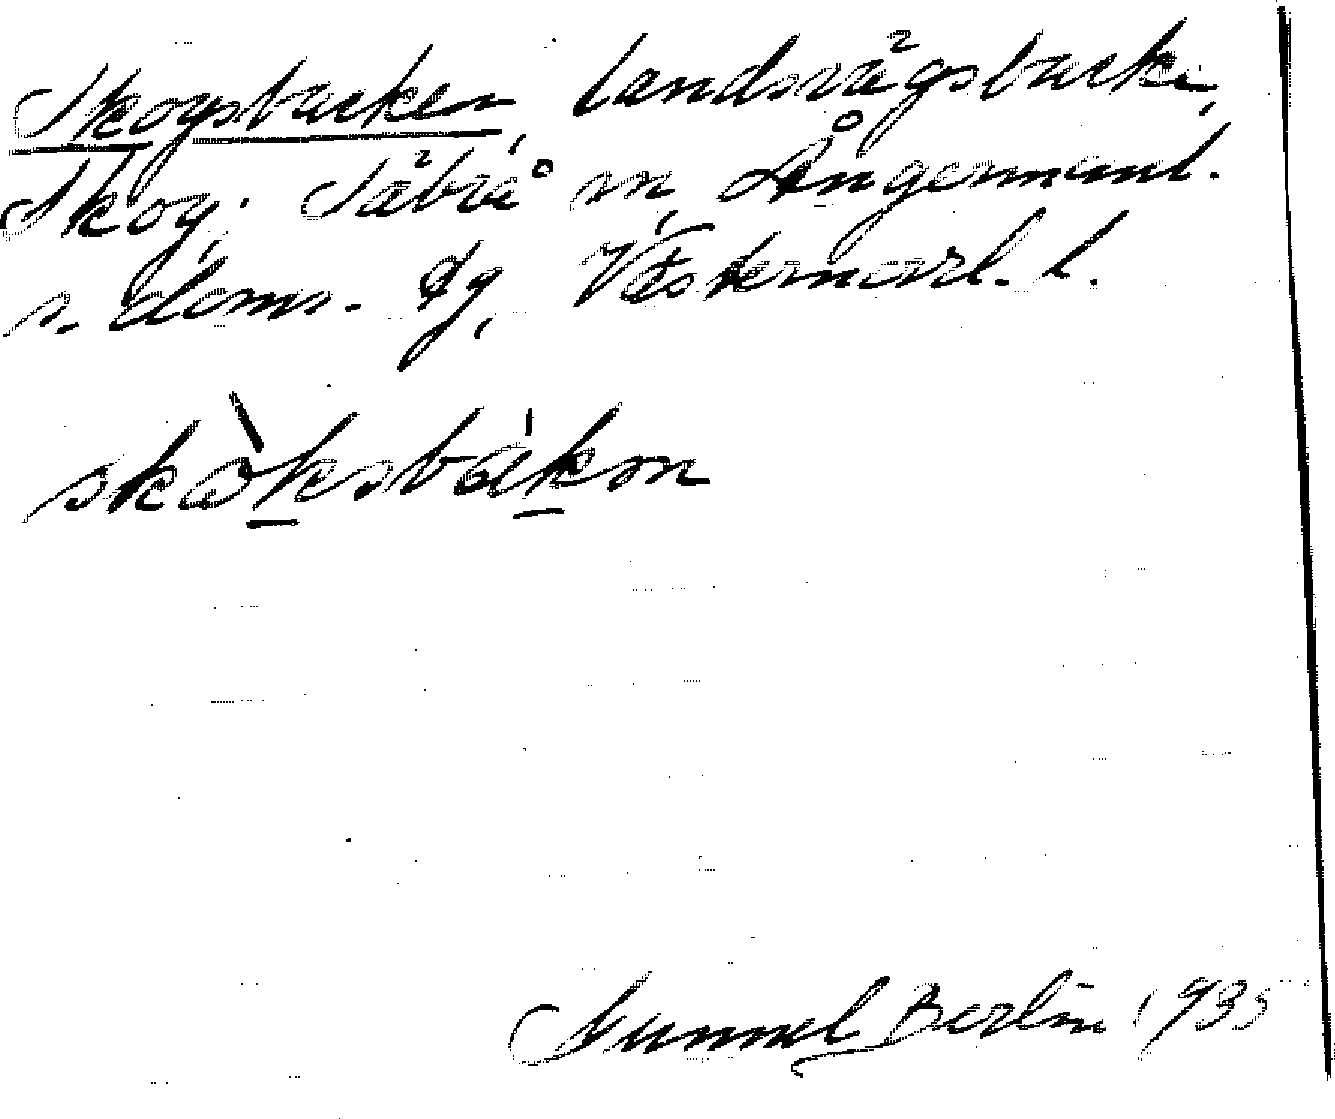 Skogsbacken, landsvägsbacke,
Skog. Säbrå sn Ångermanl.
s. doms. dg, Västernorrl. l.
skòksbákɷn
Gunnel Berlin 1935